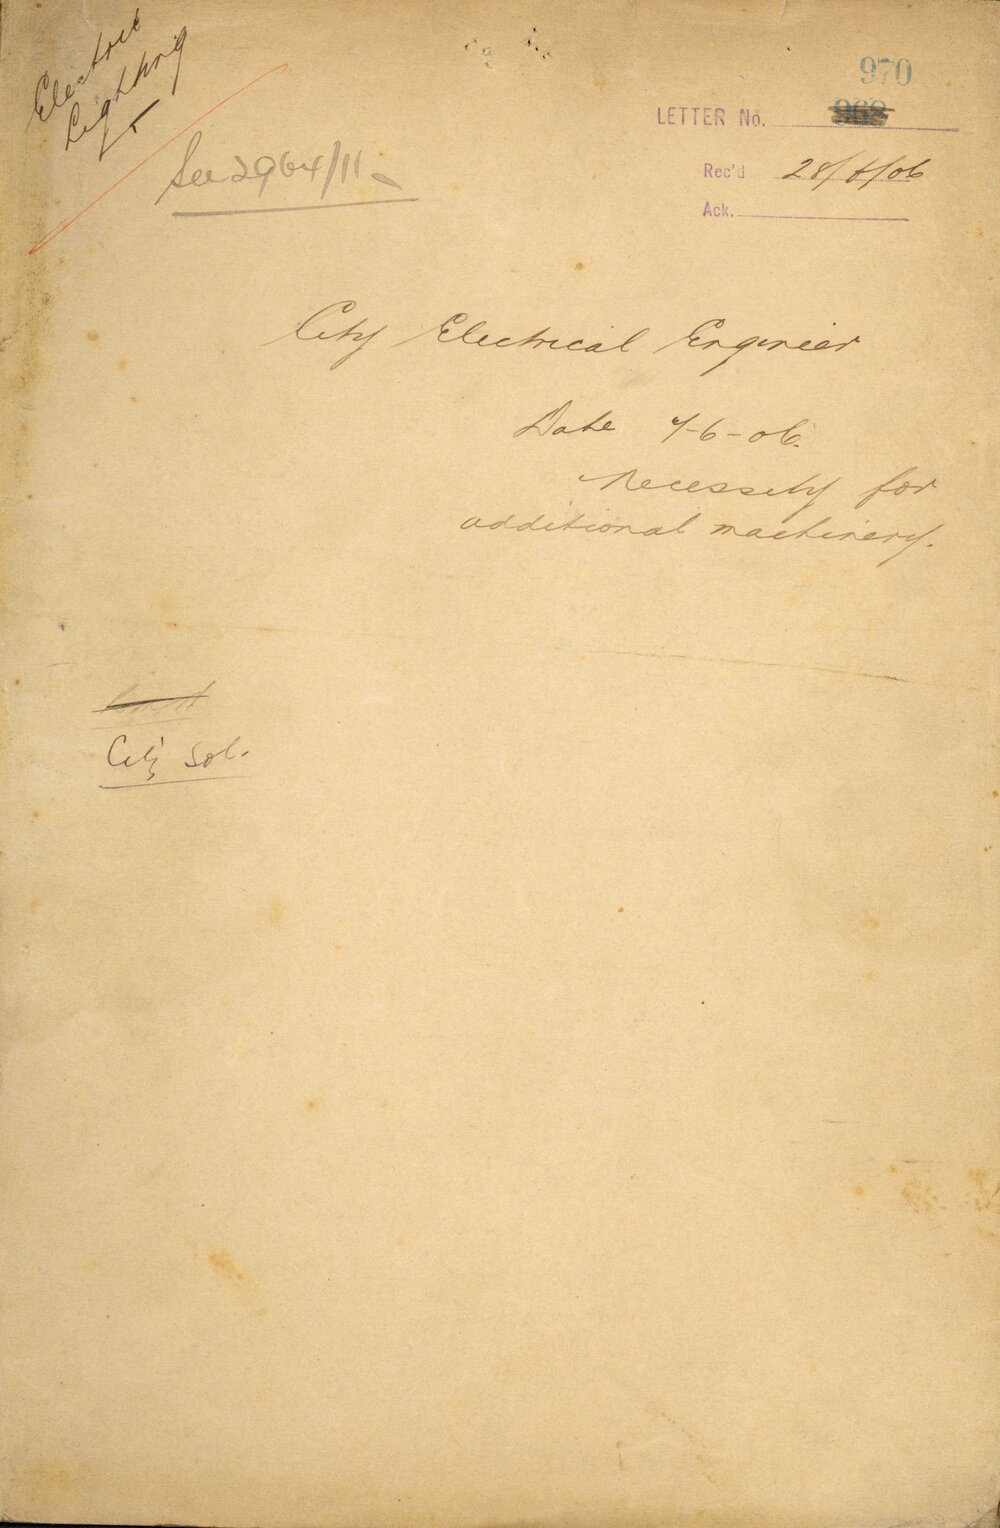 Electric
Lighting
5
970
LETTER No. 968
See 2964/11.
Rec'd 28/6/06
Ack.
City Electrical Engineer
Date 7-6-06.
Necessity for
additional machinery.
City Sol.